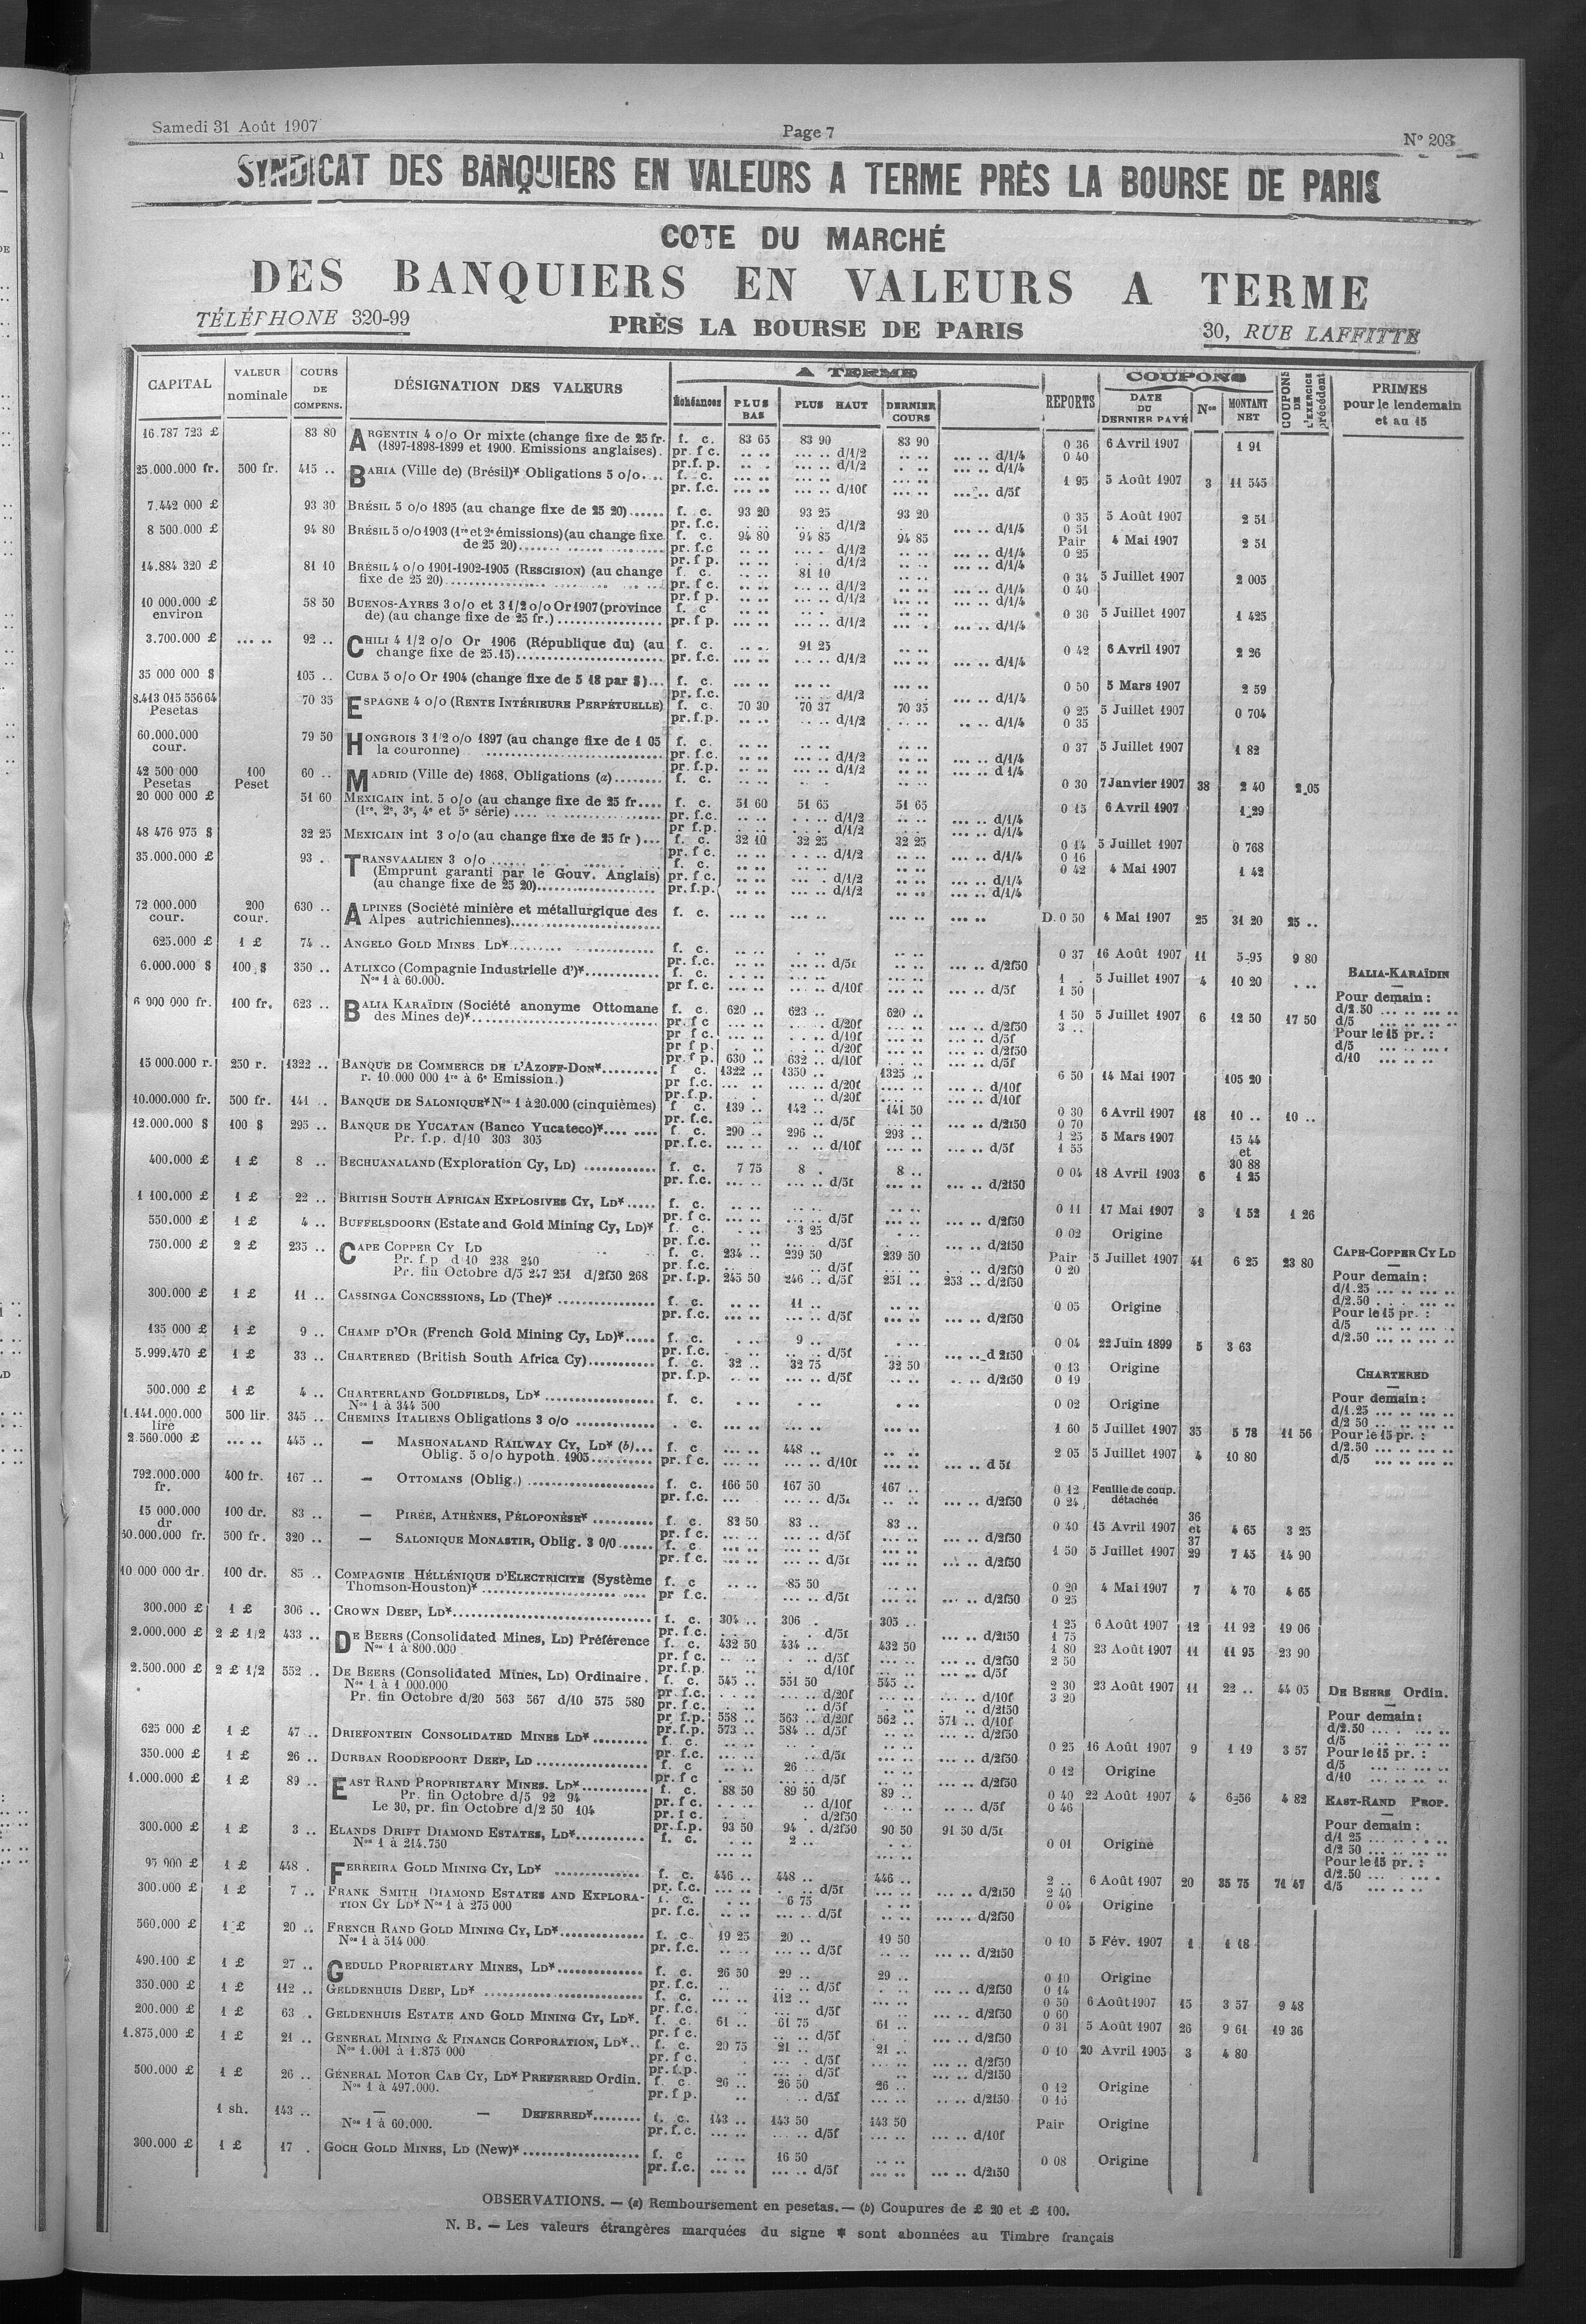 Samedi 31 Août 1907
Page 7
N° 203
SYNDICAT DES BANQUIERS EN VALEURS A TERME PRÈS LA BOURSE DE PARIS
COTE DU MARCHÉ
DES BANQUIERS EN VALEURS A TERME
TÉLÉPHONE 320-99
PRÈS LA BOURSE DE PARIS
30, RUE LAFFITTE
CAPITAL VALEUR nominale COURS DE COMPENS. DÉSIGNATION DES VALEURS A TERME Échéances PLUS BAS PLUS HAUT DERNIER COURS REPORTS COUPONS DATE DU DERNIER PAYÉ Nos MONTANT NET COUPONS DE L'EXERCICE précédent PRIMES pour le lendemain et au 15
16.787 723 £ 83 80 ARGENTIN 4 o/o Or mixte (change fixe de 25 fr. f. c. 83 65 83 90 83 90 0 36 6 Avril 1907 1 91
(1897-1898-1899 et 1900. Emissions anglaises). pr. f c. d/1/2 d/1/4 0 40
25.000.000 fr. 500 fr. 415 .. BAHIA (Ville de) (Brésil)* Obligations 5 o/o. f. c. 1 95 5 Août 1907 3 11 545
pr. f.c. d/10f d/5f
7.442 000 £ 93 30 BRÉSIL 5 o/o 1895 (au change fixe de 25 20) f. c. 93 20 93 25 93 20 0 35 5 Août 1907 2 51
8 500.000 £ 94 80 BRÉSIL 5 o/o 1903 (1re et 2e émissions) (au change fixe f. c. 94 80 94 85 94 85 Pair 4 Mai 1907 2 51
de 25 20) pr. f.c d/1/2 d/1/4 0 25
14.884 320 £ 81 10 BRÉSIL 4 o/o 1901-1902-1905 (RESCISION) (au change f. c. 81 10 0 34 5 Juillet 1907 2 005
fixe de 25 20) pr. f c. d/1/2 d/1/4 0 40
10 000.000 £ environ 58 50 BUENOS-AYRES 3 o/o et 3 1/2 o/o Or 1907 (province f. c 0 36 5 Juillet 1907 1 425
de) (au change fixe de 25 fr.) pr. f p. d/1/2 d/1/4
3.700.000 £ 92 .. CHILI 4 1/2 o/o Or 1906 (République du) (au f. c. 91 25 0 42 6 Avril 1907 2 26
change fixe de 25.15) pr. f.c. d/1/2 d/1/4
35 000 000 $ 105 .. CUBA 5 o/o Or 1904 (change fixe de 5 18 par $) f. c. 0 50 5 Mars 1907 2 59
8.413 015 556 64 Pesetas 70 35 ESPAGNE 4 o/o (RENTE INTÉRIEURE PERPÉTUELLE) f. c. 70 30 70 37 70 35 0 25 5 Juillet 1907 0 704
pr. f.p. d/1/2 d/1/4 0 35
60.000.000 cour. 79 50 HONGROIS 3 1/2 o/o 1897 (au change fixe de 1 05 f. c. 0 37 5 Juillet 1907 1 82
la couronne) pr. f.c. d/1/2 d/1/4
42 500 000 Pesetas 100 Peset 60 .. MADRID (Ville de) 1868. Obligations (a) f. c. 0 30 7 Janvier 1907 38 2 40 2 05
20 000 000 £ 51 60 MEXICAIN int. 5 o/o (au change fixe de 25 fr. f. c. 51 60 51 65 51 65 0 15 6 Avril 1907 1 29
(1re, 2e, 3e, 4e et 5e série) pr. f.c. d/1/2 d/1/4
48 476 975 $ 32 25 MEXICAIN int 3 o/o (au change fixe de 25 fr ) f. c. 32 10 32 25 32 25 0 14 5 Juillet 1907 0 768
35.000.000 £ 93 . TRANSVAALIEN 3 o/o f. c. 0 42 4 Mai 1907 1 42
(Emprunt garanti par le Gouv. Anglais) pr. f.c. d/1/2 d/1/4
(au change fixe de 25 20) pr. f.p. d/1/2 d/1/4
72 000.000 cour. 200 cour. 630 .. ALPINES (Société minière et métallurgique des f. c. D. 0 50 4 Mai 1907 25 31 20 25 ..
Alpes autrichiennes)
625.000 £ 1 £ 74 .. ANGELO GOLD MINES LD* f. c. 0 37 16 Août 1907 11 5 95 9 80
6.000.000 $ 100 $ 350 .. ATLIXCO (Compagnie Industrielle d')* f. c. 1 . 5 Juillet 1907 4 10 20
Nos 1 à 60.000. pr f c. d/10f d/5f 1 50
6 000 000 fr. 100 fr. 623 .. BALIA KARAÏDIN (Société anonyme Ottomane f. c. 620 .. 623 .. 620 .. 1 50 5 Juillet 1907 6 12 50 17 50
des Mines de)* pr. f c d/20f d/2f50 3 ..
pr. f p. 630 .. 632 .. d/10f d/5f
BALIA-KARAÏDIN
Pour demain :
d/2.50
d/5
Pour le 15 pr. :
d/5
d/10
15 000.000 r. 250 r. 1322 .. BANQUE DE COMMERCE DE L'AZOFF-DON* f c. 1322 .. 1350 .. 1325 .. 6 50 14 Mai 1907 105 20
r. 10.000 000 1re à 6e Emission.) pr f.c. d/20f d/10f
10.000.000 fr. 500 fr. 141 .. BANQUE DE SALONIQUE* Nos 1 à 20.000 (cinquièmes) f c. 139 .. 142 .. 141 50 0 30 6 Avril 1907 18 10 .. 10 ..
12.000.000 $ 100 $ 295 .. BANQUE DE YUCATAN (Banco Yucateco)* f. c. 290 .. 296 .. 293 .. 1 25 5 Mars 1907 15 44 et 30 88
Pr. f.p. d/10 303 305 pr. f.c. d/10f d/5f 1 55
400.000 £ 1 £ 8 .. BECHUANALAND (Exploration Cy, LD) f. c. 7 75 8 . 8 .. 0 04 18 Avril 1903 6 1 25
1 100.000 £ 1 £ 22 .. BRITISH SOUTH AFRICAN EXPLOSIVES CY, LD* f. c. 0 11 17 Mai 1907 3 1 52 1 26
550.000 £ 1 £ 4 .. BUFFELSDOORN (Estate and Gold Mining Cy, LD)* f. c. 3 25 0 02 Origine
750.000 £ 2 £ 235 .. CAPE COPPER CY LD f. c. 234 .. 239 50 239 50 Pair 5 Juillet 1907 41 6 25 23 80
Pr. f.p d 10 238 240 pr. f.c. d/5f d/2f50 0 20
Pr. fin Octobre d/5 247 251 d/2f50 268 pr. f.p. 245 50 246 .. d/5f 251 .. 253 .. d/2f50
CAPE-COPPER CY LD
Pour demain :
d/1.25
d/2.50
Pour le 15 pr. :
d/5
d/2.50
300.000 £ 1 £ 11 .. CASSINGA CONCESSIONS, LD (The)* f. c. 11 .. 0 05 Origine
135 000 £ 1 £ 9 .. CHAMP D'OR (French Gold Mining Cy, LD)* f. c. 9 .. 0 04 22 Juin 1899 5 3 63
5.999.470 £ 1 £ 33 .. CHARTERED (British South Africa Cy) f. c. 32 .. 32 75 32 50 0 13 Origine
pr. f.p. d/5f d/2f50 0 19
500.000 £ 1 £ 4 .. CHARTERLAND GOLDFIELDS, LD* f. c. 0 02 Origine
Nos 1 à 344 500
CHARTERED
Pour demain :
d/1.25
d/2 50
Pour le 15 pr. :
d/2.50
d/5
1.141.000.000 lire 500 lir. 345 .. CHEMINS ITALIENS Obligations 3 o/o . c. 1 60 5 Juillet 1907 35 5 78 11 56
2.560.000 £ 445 .. — MASHONALAND RAILWAY CY, LD* (b) f. c 448 .. 2 05 5 Juillet 1907 4 10 80
Oblig. 5 o/o hypoth. 1905 pr. f c. d/10f d 5f
792.000.000 fr. 400 fr. 167 .. — OTTOMANS (Oblig.) f. c. 166 50 167 50 167 .. 0 12 Feuille de coup. détachée
15 000.000 dr 100 dr. 83 .. — PIRÉE, ATHÈNES, PÉLOPONÈSE* f. c. 82 50 83 .. 83 .. 0 40 15 Avril 1907 36 et 37 4 65 3 25
500 fr. 320 .. — SALONIQUE MONASTIR, Oblig. 3 0/0 f. c. 1 50 5 Juillet 1907 29 7 45 14 90
10 000 000 dr. 100 dr. 85 .. COMPAGNIE HÉLLÉNIQUE D'ELECTRICITE (Système f. c 85 50 0 20 4 Mai 1907 7 4 70 4 65
Thomson-Houston)* pr f.c. d/5f d/2f50 0 25
300.000 £ 1 £ 306 .. CROWN DEEP, LD* f. c. 304 .. 306 . 305 .. 1 25 6 Août 1907 12 11 92 19 06
2.000.000 £ 2 £ 1/2 433 .. DE BEERS (Consolidated Mines, LD) Préférence f. c. 432 50 434 .. 432 50 1 80 23 Août 1907 11 11 95 23 90
Nos 1 à 800.000 pr. f c. d/5f d/2f50 2 50
2.500.000 £ 2 £ 1/2 552 .. DE BEERS (Consolidated Mines, LD) Ordinaire. f. c. 545 .. 551 50 545 .. 2 30 23 Août 1907 11 22 .. 44 05
Nos 1 à 1 000.000 pr. f.c. d/20f d/10f 3 20
Pr. fin Octobre d/20 563 567 d/10 575 580
pr. f.p. 558 .. 563 .. d/20f 562 .. 571 .. d/10f
pr. f.p. 573 .. 584 .. d/5f d/2f50
DE BEERS Ordin.
Pour demain :
d/2.50
d/5
Pour le 15 pr. :
d/5
d/10
625 000 £ 1 £ 47 .. DRIEFONTEIN CONSOLIDATED MINES LD* f. c. 0 25 16 Août 1907 9 1 19 3 57
350.000 £ 1 £ 26 .. DURBAN ROODEPOORT DEEP, LD f. c 26 .. 0 12 Origine
1.000.000 £ 1 £ 89 .. EAST RAND PROPRIETARY MINES. LD* f. c. 88 50 89 50 89 .. 0 40 22 Août 1907 4 6 56 4 82
Pr. fin Octobre d/5 92 94 pr. f c. d/10f d/5f 0 46
Le 30, pr. fin Octobre d/2 50 104 pr. f c. d/2f50
pr. f.p 93 50 94 . d/2f50 90 50 91 50 d/5f
EAST-RAND PROP.
Pour demain :
d/1 25
d/2 50
Pour le 15 pr. :
d/2.50
d/5
300.000 £ 1 £ 3 .. ELANDS DRIFT DIAMOND ESTATES, LD* f. c. 2 .. 0 01 Origine
Nos 1 à 214.750
1 £ 448 . FERREIRA GOLD MINING CY, LD* f. c. 446 .. 448 .. 446 .. 2 .. 6 Août 1907 20 35 75 71 47
300.000 £ 1 £ 7 .. FRANK SMITH DIAMOND ESTATES AND EXPLORA- f. c. 6 75 0 04 Origine
TION CY LD* Nos 1 à 275 000 pr. f.c. d/5f d/2f50
560.000 £ 1 £ 20 .. FRENCH RAND GOLD MINING CY, LD* f. c. 19 25 20 .. 19 50 0 10 5 Fév. 1907 1 1 18
Nos 1 à 514 000 pr. f.c. d/5f d/2f50
490.100 £ 1 £ 27 .. GEDULD PROPRIETARY MINES, LD* f. c. 26 50 29 .. 29 .. 0 10 Origine
350.000 £ 1 £ 112 .. GELDENHUIS DEEP, LD* f. c. 112 .. 0 50 6 Août 1907 15 3 57 9 48
200.000 £ 1 £ 63 . GELDENHUIS ESTATE AND GOLD MINING CY, LD*. f. c. 61 .. 61 75 61 .. 0 31 5 Août 1907 26 9 61 19 36
1.875.000 £ 1 £ 21 .. GENERAL MINING & FINANCE CORPORATION, LD* f. c. 20 75 21 .. 21 .. 0 10 20 Avril 1905 3 4 80
Nos 1.001 à 1.875 000 pr. f c. d/5f d/2f50
500.000 £ 1 £ 26 .. GÉNERAL MOTOR CAB CY, LD* PREFERRED Ordin. f. c. 26 .. 26 50 26 .. 0 12 Origine
Nos 1 à 497.000. pr. f p. d/5f d/2f50
1 sh. 143 .. — — DEFERRED* f. c. 143 .. 143 50 143 50 Pair Origine
Nos 1 à 60.000. pr. f.c. d/5f d/10f
300.000 £ 1 £ 17 . GOCH GOLD MINES, LD (New)* f. c 16 50 0 08 Origine
pr. f.c. d/5f d/2f50
OBSERVATIONS. — (a) Remboursement en pesetas. — (b) Coupures de £ 20 et £ 100.
N. B. — Les valeurs étrangères marquées du signe * sont abonnées au Timbre français